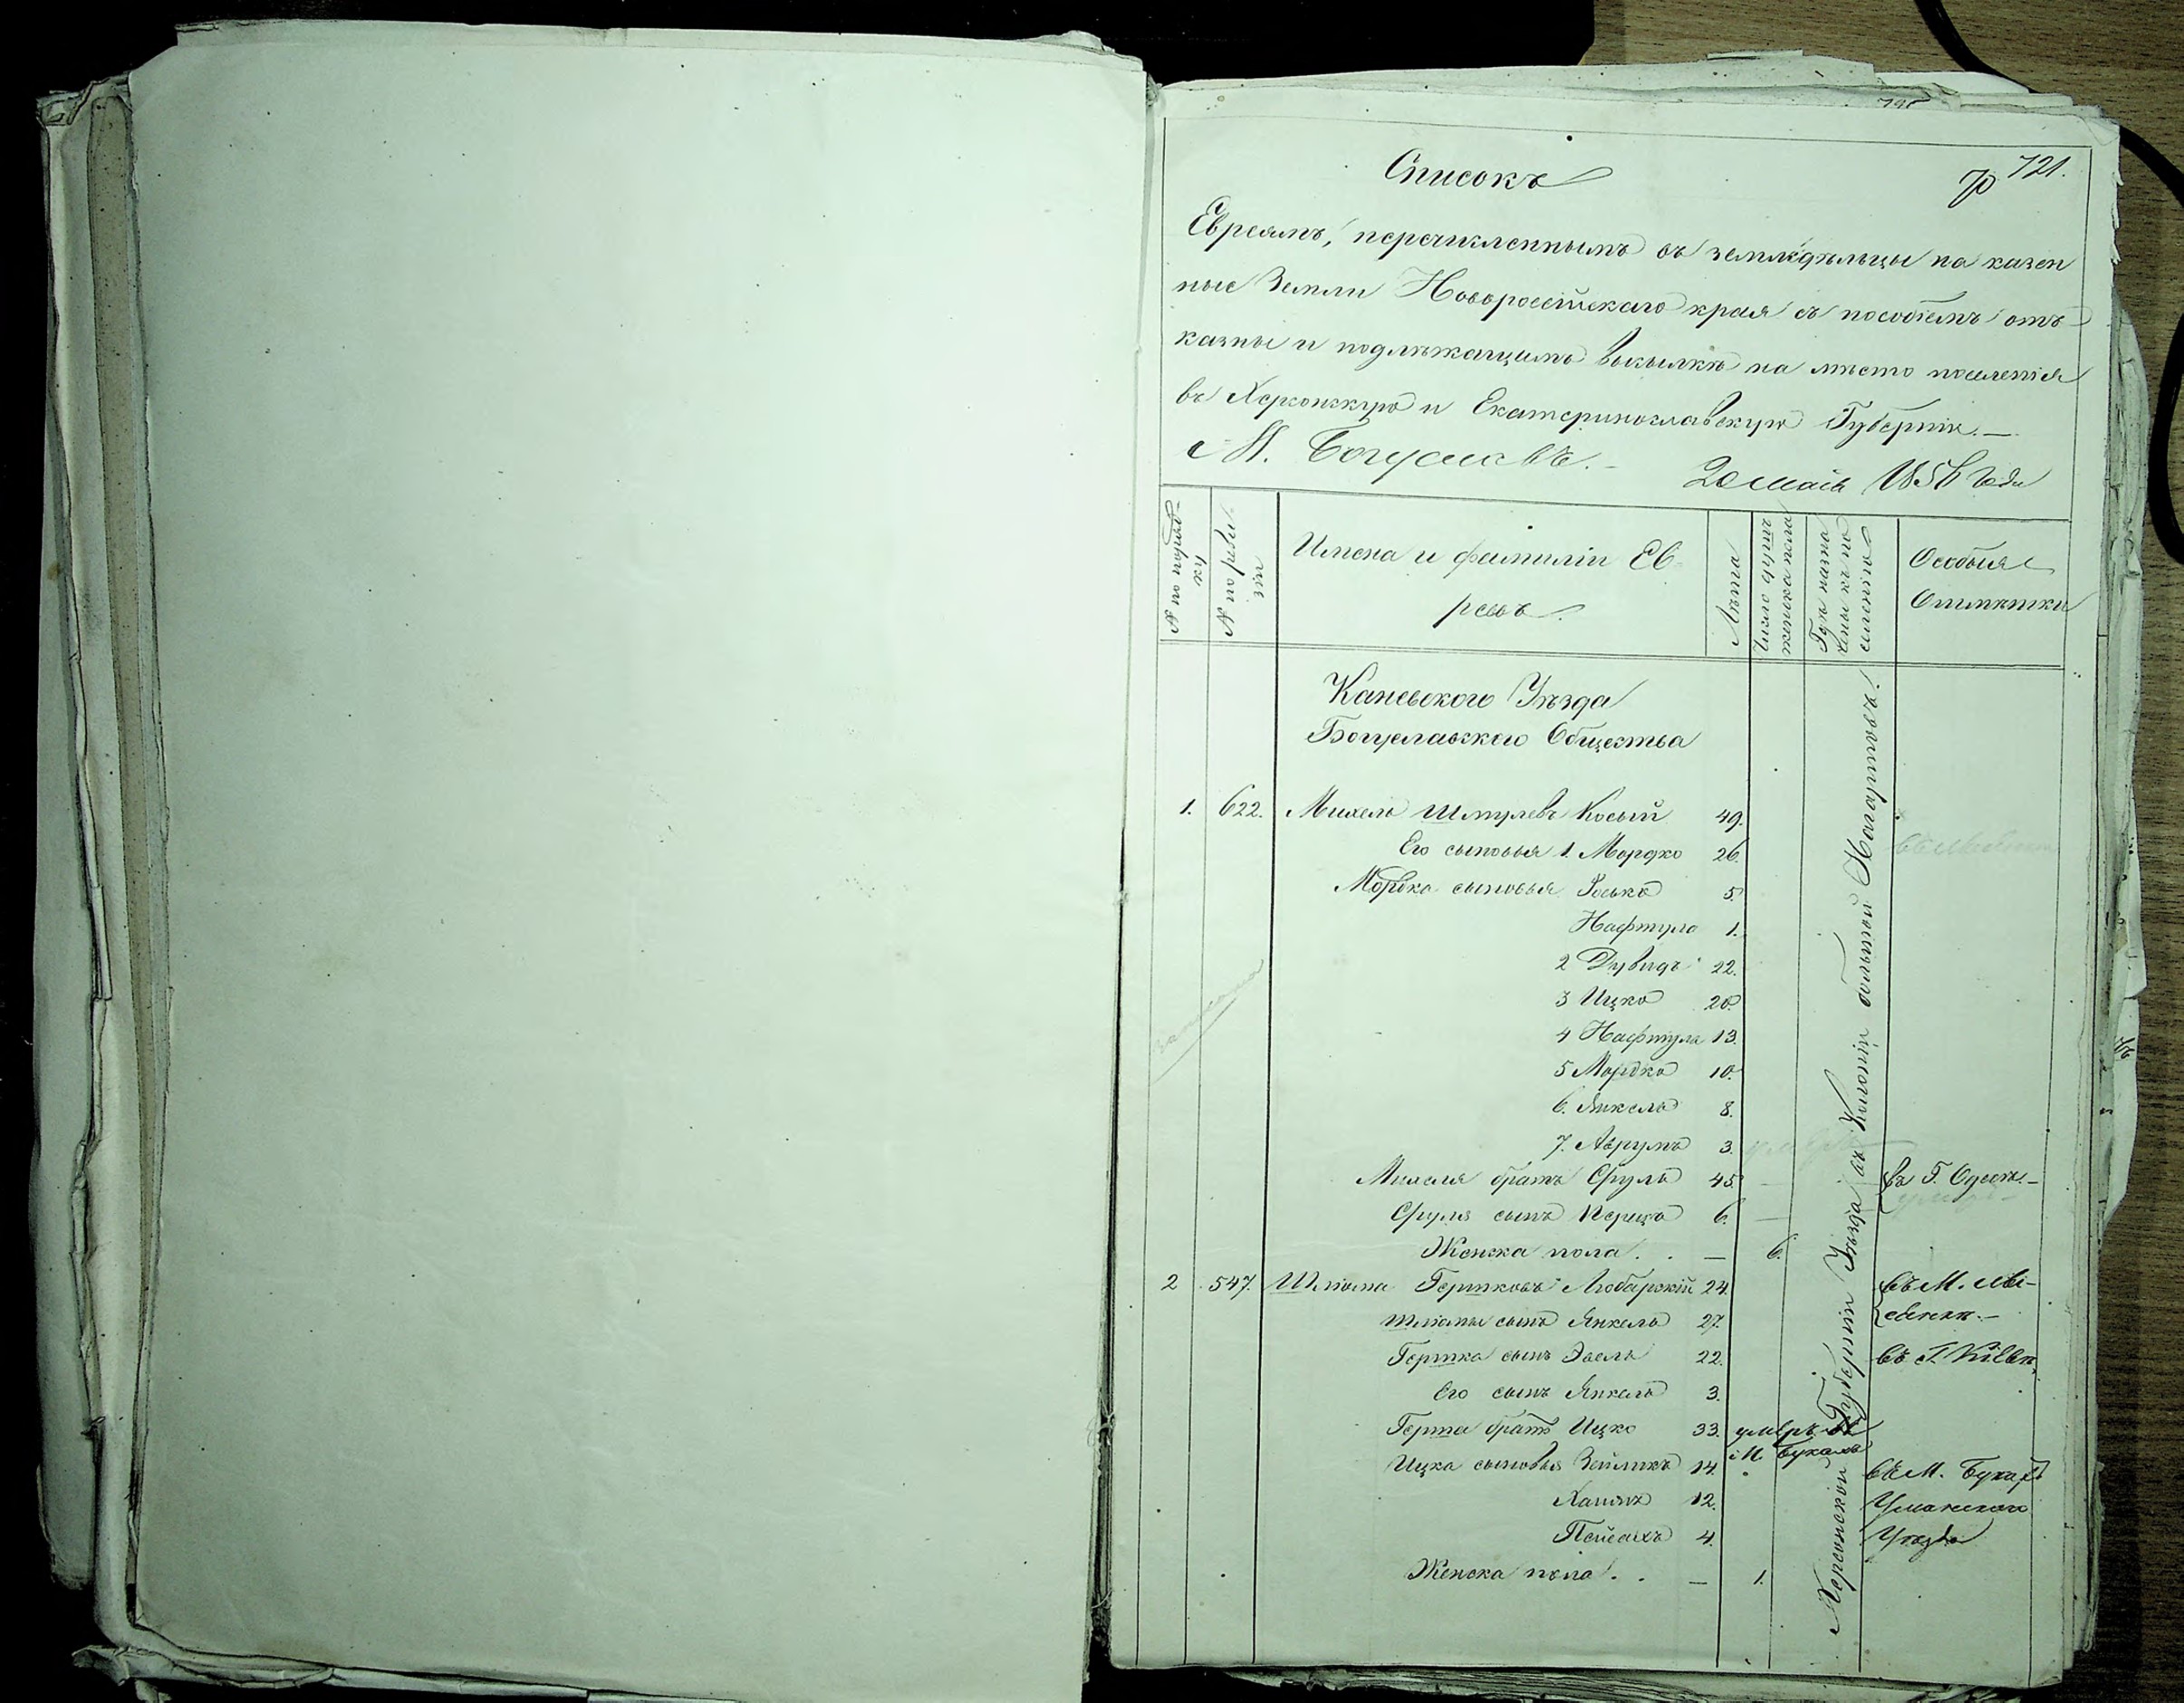 721.
70
Списокъ
Евреямъ, перечисленнымъ въ земледѣльцы на казен
ные Земли Новороссійскаго края съ пособіемъ отъ
казны и подлѣжащимъ высылкѣ на мѣсто поселенія
въ Херсонскую и Екатеринославскую Губерніи.—
М. Богуславъ.
20 маія 185 года
№ по поряд-
ку
№ по реви-
зіи
Имена и фамиліи Ев
реевъ.
Лѣта
Число душъ
женска пола
Гдѣ назна
чены къ по
селенію
Особыя
Отмѣтки
Каневского Уѣзда
Богуславского Общества
1. 622. Михель Шмулевъ Косый 49.
Его сыновья 1. Мордко 26.
Мордка сыновья Іоська 5.
Нафтула 1.
2 Дувидъ 22.
3 Ицко 20.
4 Нафтула 13.
5 Мордко 10.
6. Янкель 8.
7. Аврумъ 3.
Михеля братъ Сруль 45. — въ Г. Одессѣ.—
Сруля сынъ Перецъ 6. —
Женска пола . . — 6.
2 547. Шліома Гершковъ Любарскій 24. въ М.
Шліомы сынъ Янкель 27.
Гершка сынъ Эвель 22. въ Г. Кіевѣ
Его сынъ Янкель 3.
Герша братъ Ицко 33. умеръ въ
М. Букахъ
Ицка сыновья Зейликъ 14. въ М. Букахъ
Хаимъ 12. Уманского
Пейсахъ 4. Уѣзда
Женска пола . . — 1.
Херсонской Губерніи Уѣзда въ Колоніи большой Нагартовъ.